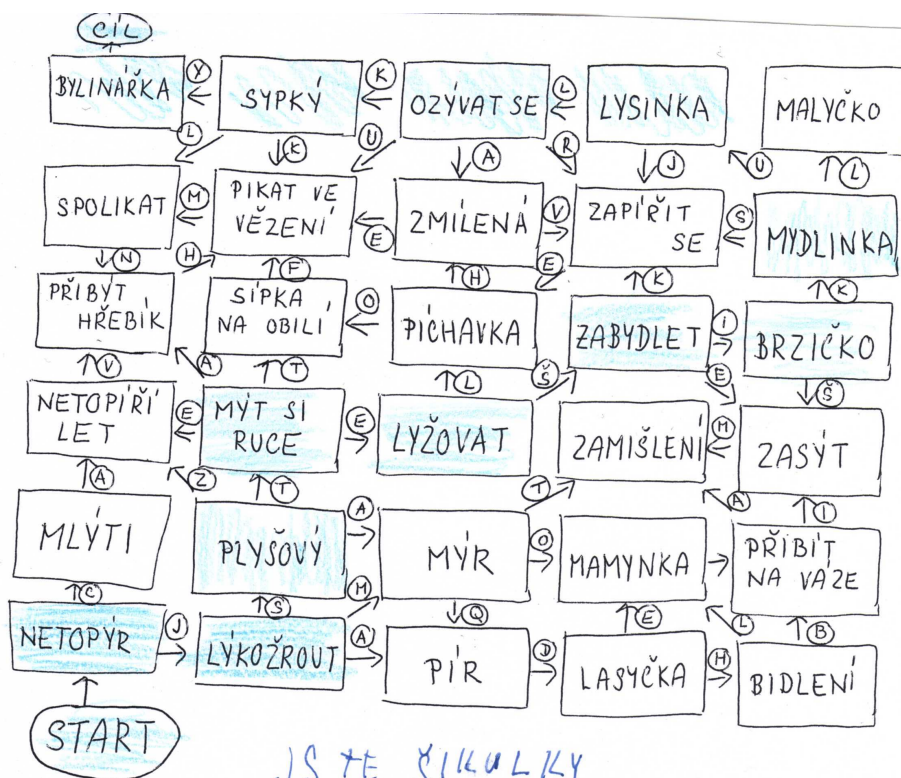 CÍL
BYLINÁŘKA Y SYPKÝ K OZÝVAT SE L LYSINKA MALYČKO
L K U A R J U L
SPOLIKAT M PIKAT VE E ZMÍLENÁ V ZAPÍŘIT S MYDLINKA
VĚZENÍ SE
N H F H E K K
PŘIBÝT SÍPKA O PÍCHAVKA ZABYDLET I BRZIČKO
HŘEBÍK NA OBILÍ
V A T L Š E Š
NETOPÍŘÍ E MÝT SI E LYŽOVAT ZAMIŠLENÍ M ZASÝT
LET RUCE
A Z T T A I
MLÝTI PLYŠOVÝ A MÝR O MAMYNKA PŘIBÍT
NA VÁZE
C S M Q E L B
NETOPÝR J LÝKOŽROUT A PÍR D LASYČKA H BIDLENÍ
START
JSTE ČIKULKY